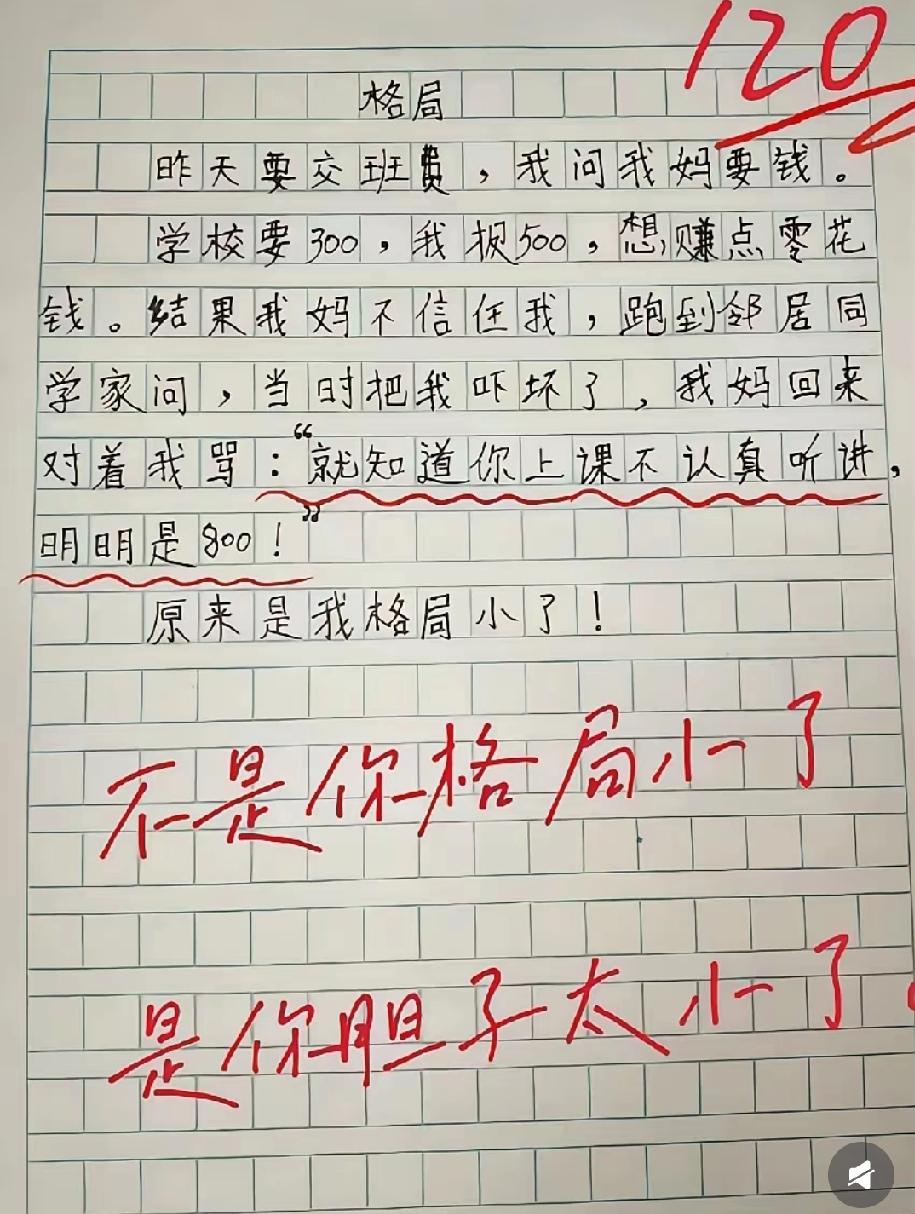 120
格局
昨天要交班费，我问我妈要钱。
学校要300，我报500，想赚点零花
钱。结果我妈不信任我，跑到邻居同
学家问，当时把我吓坏了，我妈回来
对着我骂：“就知道你上课不认真听讲，
明明是800！”
原来是我格局小了！
不是你格局小了
是你胆子太小了